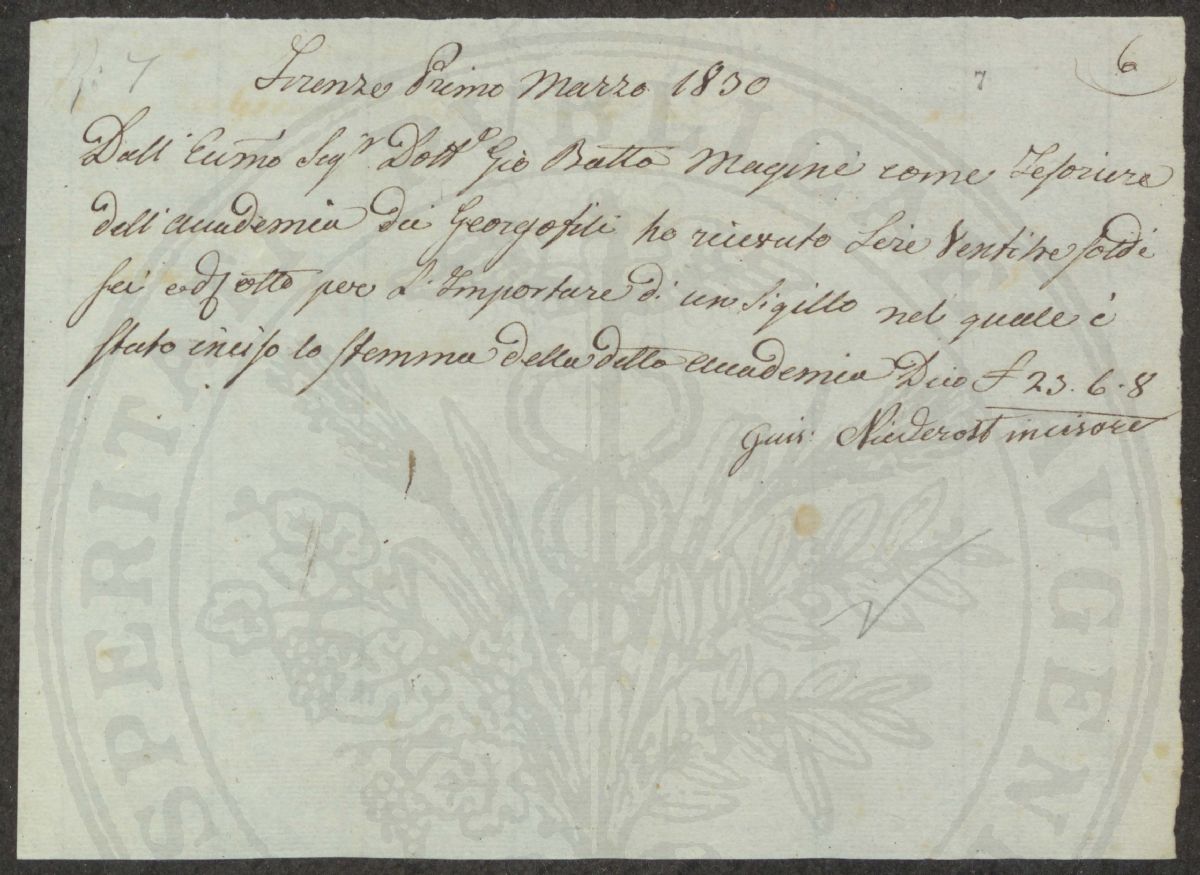 N: 7
7
6
Firenze Primo Marzo 1830
Dall' Ecc̄mo Sigʳ Dottᵉ Gio Batta Magini come Tesoriere
dell'Accademia dei Georgofili ho ricevuto Lire Ventitre soldi
sei e d otto per L'Importare di un Sigillo nel quale è
stato inciso lo stemma della detta Accademia Dico £ 23. 6. 8
Gius: Niederost incisore
PROSPERITATI PUBLICAE AUGENDAE